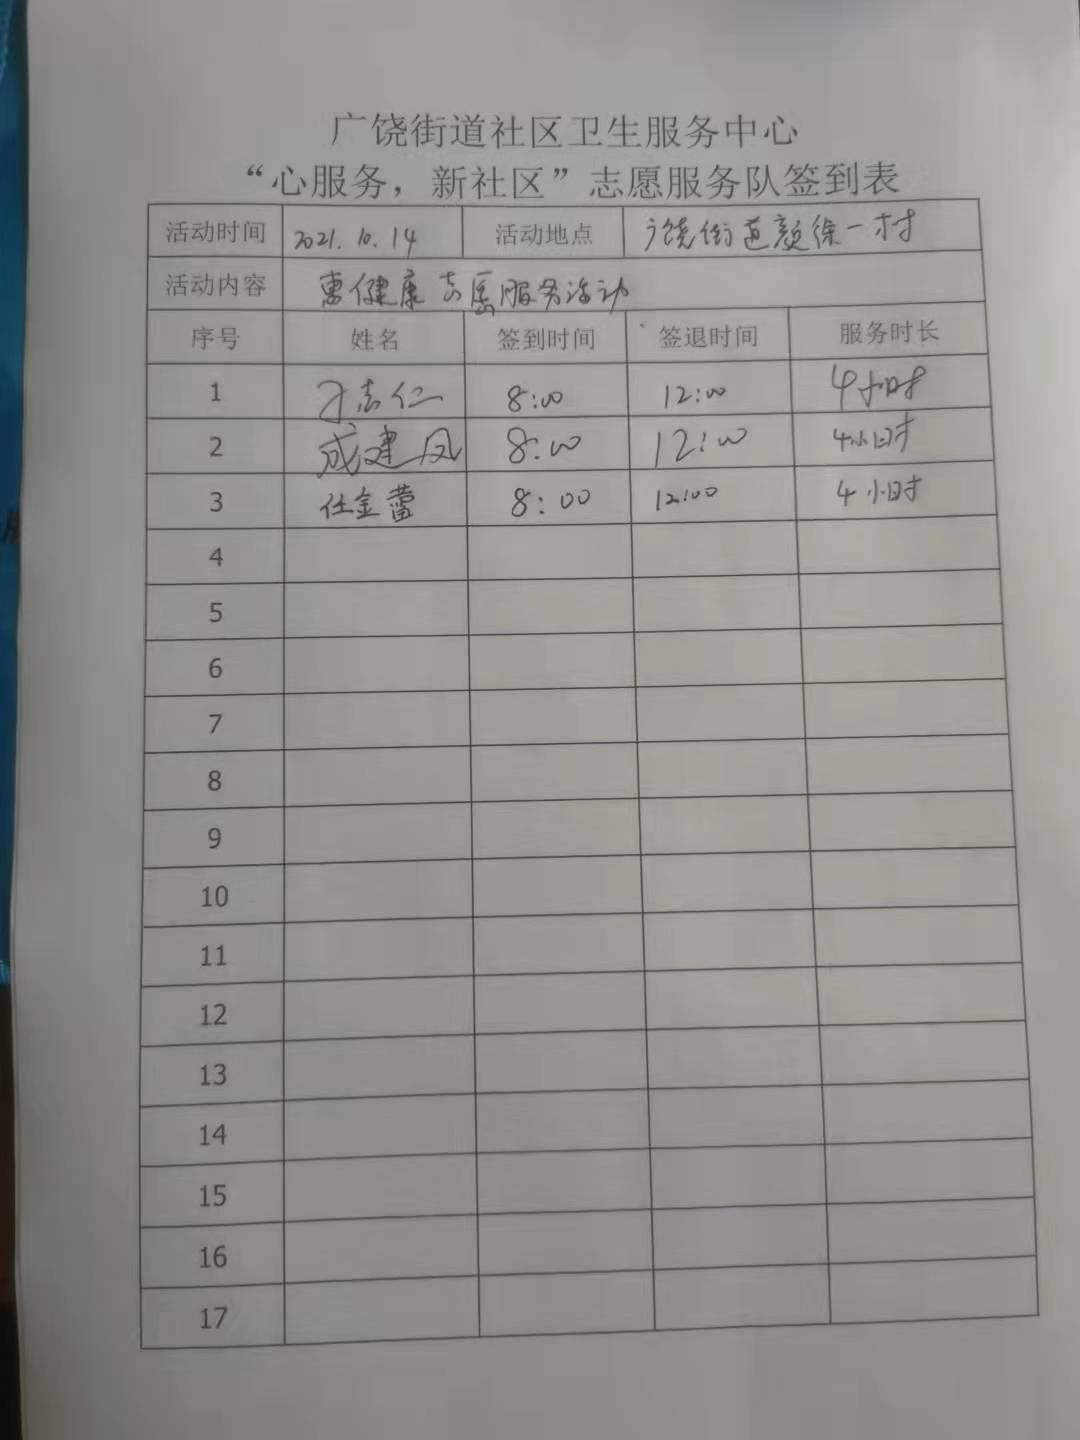 广饶街道社区卫生服务中心
“心服务，新社区”志愿服务队签到表
活动时间 2021.10.14 活动地点 广饶街道颜徐一村
活动内容 惠健康志愿服务活动
序号 姓名 签到时间 签退时间 服务时长
1 志仁 8:00 12:00 4小时
2 成建凤 8:00 12:00 4小时
3 任金蕾 8:00 12:00 4小时
4
5
6
7
8
9
10
11
12
13
14
15
16
17